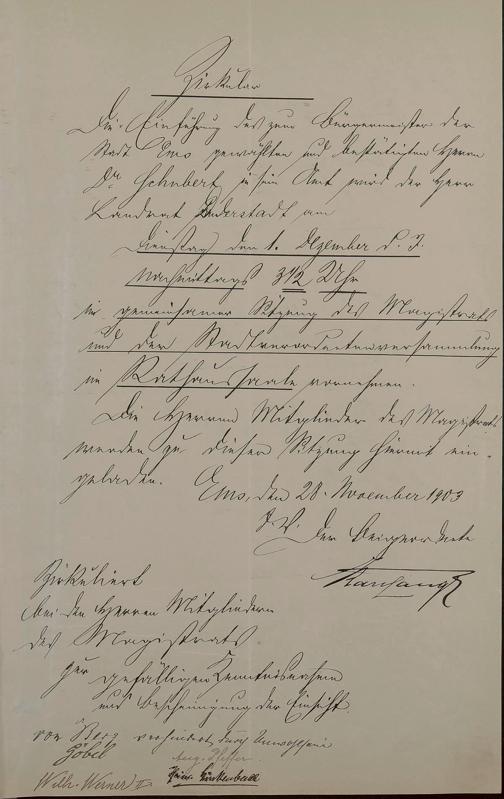 Zirkular
Die Einführung des zum Bürgermeister der
Stadt Ems gewählten und bestätigten Herrn
Dr. Schubert in sein Amt wird der Herr
Landrat Duderstadt am
Dienstag den 1. Dezember d. J.
Nachmittags 3 1/2 Uhr
in gemeinsamer Sitzung des Magistrats
und der Stadtverordnetenversammlung
im Rathaussaale vornehmen.
Die Herren Mitglieder des Magistrats
werden zu dieser Sitzung hiermit ein-
geladen. Ems, den 28. November 1903
Der Beigeordnete
Zirkuliert
bei den Herren Mitgliedern
des Magistrats
zur gefälligen Kenntnisnahme
und Bescheinigung der Einsicht.
von Berg verhindert durch
Göbel Aug. Pfeffer
Wilh. Werner II